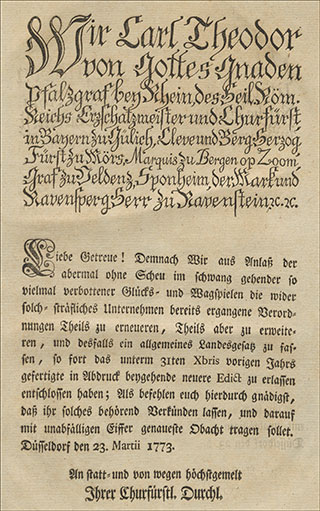 Wir Carl Theodor
von Gottes Gnaden
Pfalzgraf bey Rhein, des Heil. Röm.
Reichs Erzschatzmeister und Churfürst
in Bayern zu Gülich, Cleve und Berg Herzog
Fürst zu Mörs, Marquis zu Bergen op Zoom
Graf zu Veldenz, Sponheim, der Marck und
Ravensperg Herr zu Ravenstein ꝛc. ꝛc.
Liebe Getreue! Demnach Wir aus Anlaß der
abermal ohne Scheu im schwang gehender so
vielmal verbottener Glücks- und Wagspielen die wider
solch-sträfliches Unternehmen bereits ergangene Verord-
nungen Theils zu erneueren, Theils aber zu erweite-
ren, und desfalls ein allgemeines Landesgesatz zu fas-
sen, so fort das unterm 31ten Xbris vorigen Jahrs
gefertigte in Abdruck beygehende neuere Edict zu erlassen
entschlossen haben; Als befehlen euch hierdurch gnädigst,
daß ihr solches behörend Verkünden lassen, und darauf
mit unabfälligen Eiffer genaueste Obacht tragen sollet.
Düsseldorf den 23. Martii 1773.
An statt- und von wegen höchstgemelt
Ihrer Churfürstl. Durchl.